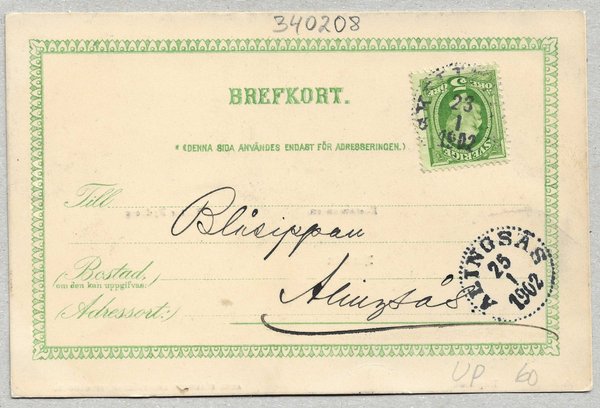 340208
BREFKORT.
* (DENNA SIDA ANVÄNDES ENDAST FÖR ADRESSERINGEN.)
23
1
1902
5 ÖRE
SVERIGE
Till
Blåsippan
(Bostad,
om den kan uppgifvas:)
(Adressort:)
Alingsås
ALINGSÅS
25
1
1902
UP. 60